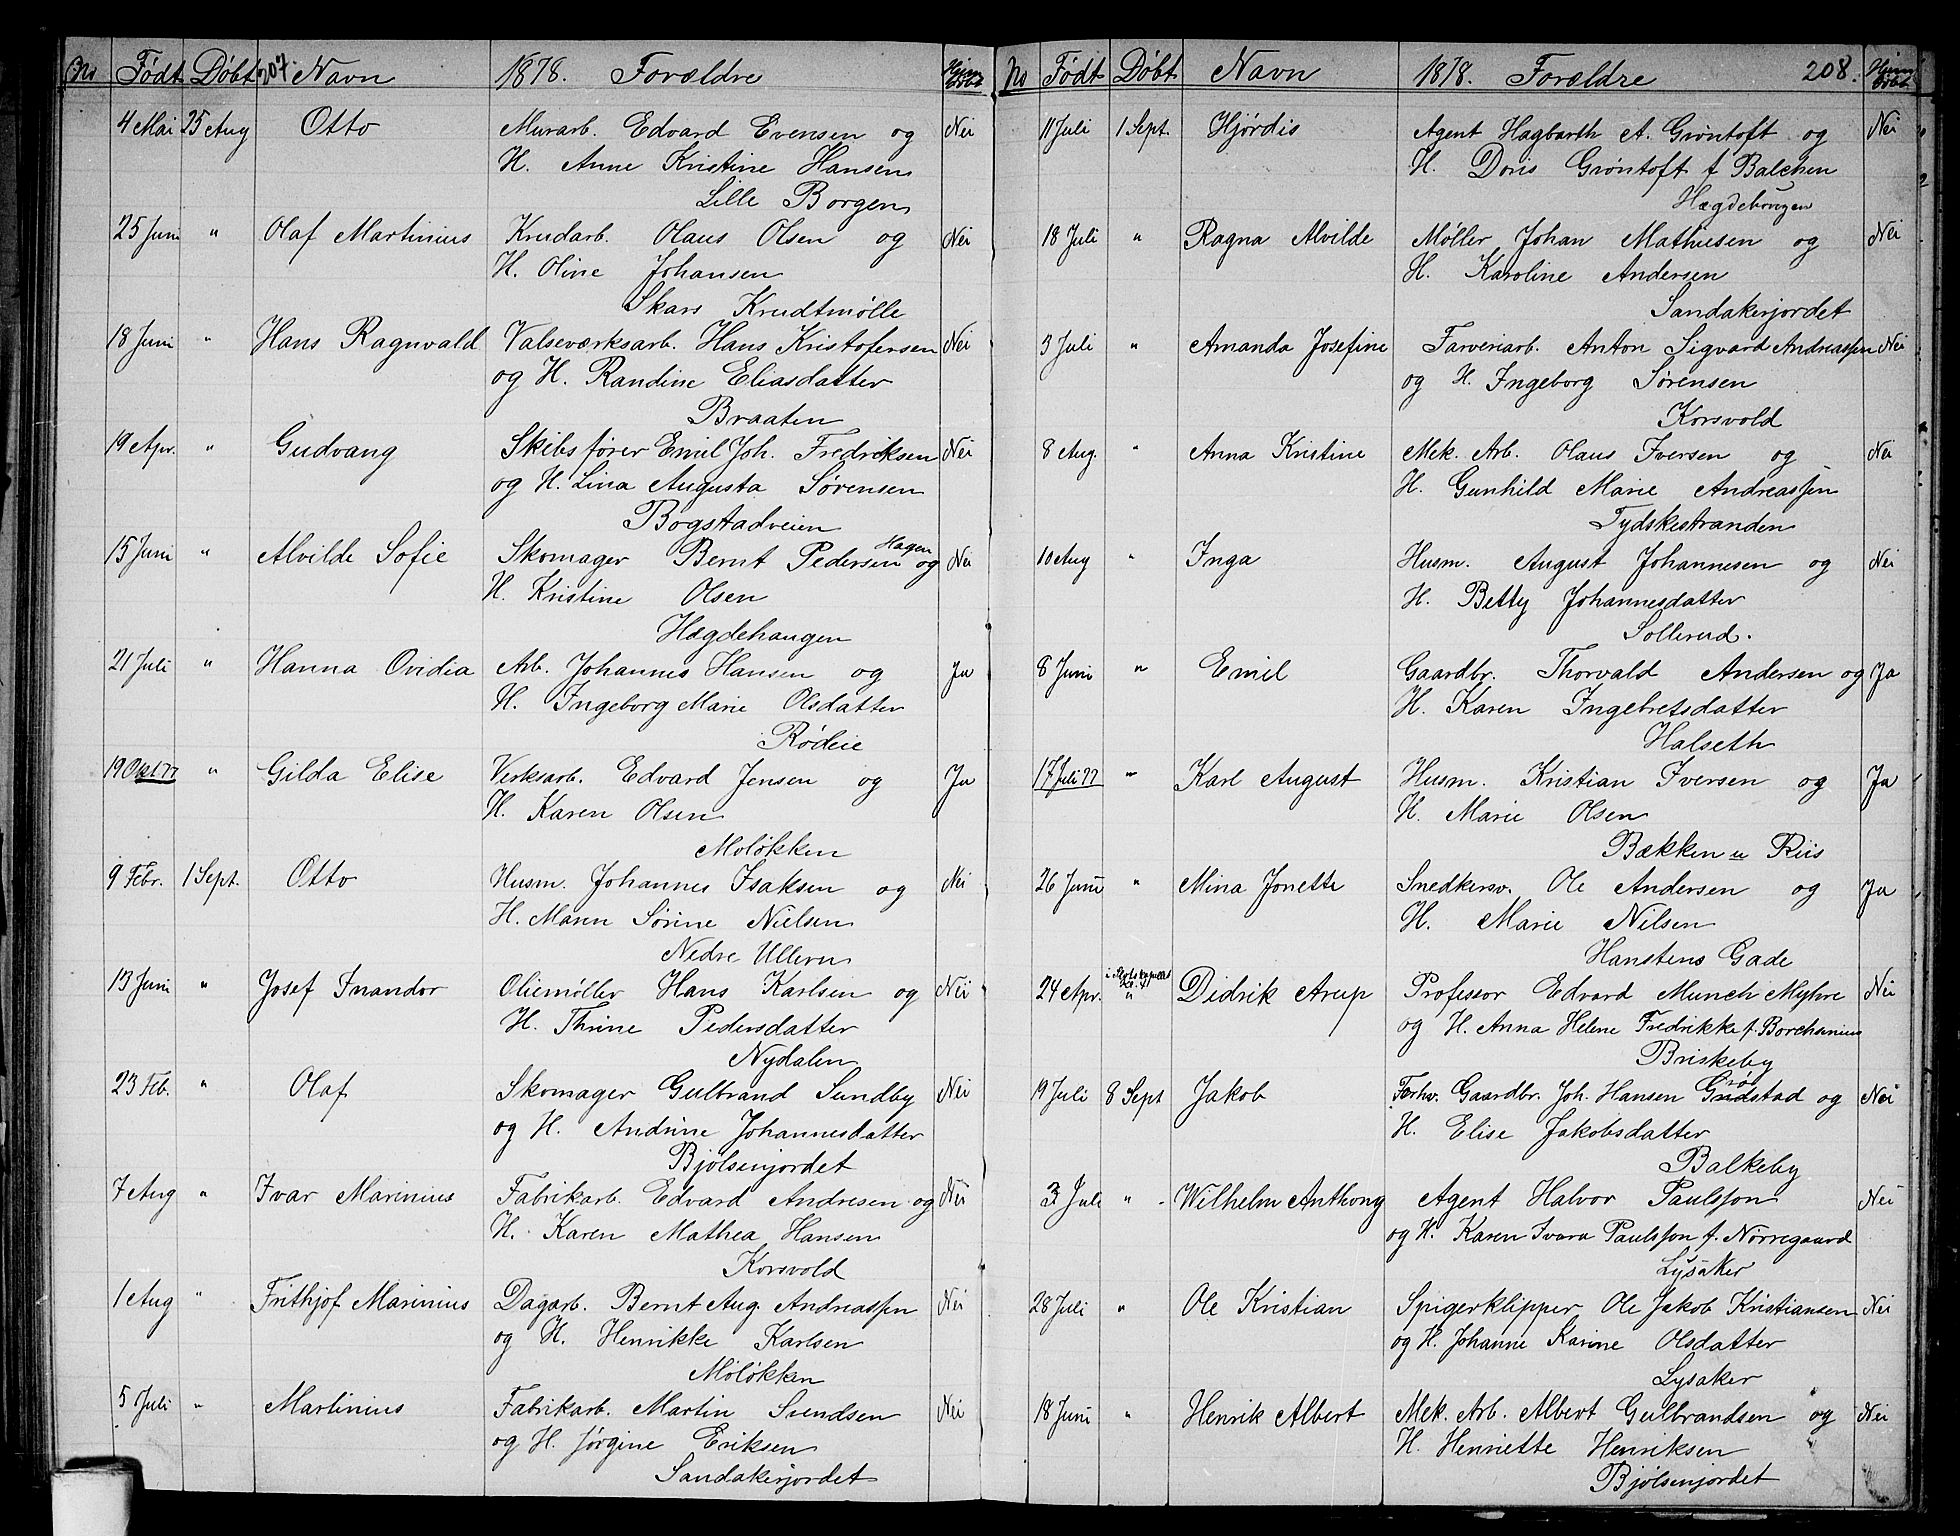 No Født Døbt 207. Navn 1878. Forældre Hjemdøbt
4 Mai 25 Aug Otto Murarb. Edvard Evensen og Nei
H. Anne Kristine Hansen
Lille Borgen
25 Juni " Olaf Martinius Krudarb. Olaus Olsen og Nei
H. Oline Johansen
Skars Krudtmølle
18 Juni " Hans Ragnvald Valseværksarb. Hans Kristofersen Nei
og H. Randine Eliasdatter
Braaten
19 Apr. " Gudvang Skibsfører Emil Joh. Fredriksen Nei
og H. Lina Augusta Sørensen
Bogstadveien
15 Juni " Alvilde Sofie Skomager Bernt Pedersen Hagen og Nei
H. Kristine Olsen
Hægdehaugen
21 Juli " Hanna Ovidia Arb. Johannes Hansen og Ja
H. Ingeborg Marie Olsdatter
Rødeie
19 Okt 77 " Gilda Elise Verksarb. Edvard Jensen og Ja
H. Karen Olsen
Moløkken
9 Febr. 1 Sept. Otto Husm. Johannes Isaksen og Nei
H. Maren Sørine Nielsen
Nedre Ullern
13 Juni " Josef Inandor Oliemøller Hans Karlsen og Nei
H. Thrine Pedersdatter
Nydalen
23 Feb. " Olaf Skomager Gulbrand Sundby Nei
og H. Andrine Johannesdatter
Bjølsenjordet
7 Aug " Ivar Marinius Fabrikarb. Edvard Andresen og Nei
H. Karen Mathea Hansen
Korsvold
1 Aug " Frithjof Marinius Dagarb. Bernt Aug. Andreassen Nei
og H. Henrikke Karlsen
Moløkken
5 Juli " Martinius Fabrikarb. Martin Svendsen Nei
og H. Jørgine Eriksen
Sandakerjordet
No Født Døbt Navn 1878. Forældre 208. Hjemdøbt
11 Juli 1 Sept. Hjørdis Agent Hagbarth A. Grøntoft og Nei
H. Doris Grøntoft f Balchen
Hægdehougen
18 Juli " Ragna Alvilde Møller Johan Mathiesen og Nei
H. Karoline Andersen
Sandakerjordet
3 Juli " Amanda Josefine Farveriarb. Anton Sigvard Andreassen Nei
og H. Ingeborg Sørensen
Korsvold
8 Aug " Anna Kristine Mek. Arb. Olaus Iversen og Nei
H. Gunhild Marie Andreassen
Tydskestranden
10 Aug " Inga Husm. August Johannesen og Nei
H. Betty Johannesdatter
Sollerud.
8 Juni " Emil Gaardbr. Thorvald Andersen og Ja
H. Karen Ingebretsdatter
Halseth
17 Juli 77 " Karl August Husm. Kristian Iversen og Ja
H. Marie Olsen
Bækken u Riis
26 Juni " Mina Jonette Snedkersv. Ole Andersen og Ja
H. Marie Nilsen
Hanstens Gade
24 Apr. " Didrik Arup Professor Edvard Munch Myhre Nei
og H. Anna Helene Fredrikke f. Borchsenius
Briskeby
19 Juli 8 Sept Jakob Forhv. Gaardbr. Joh. Hansen Grøstad og Nei
H. Elise Jakobsdatter
Balkeby
3 Juli " Wilhelm Anthony Agent Halvor Paulsson Nei
og H. Karen Ivara Paulsson f. Nørregaard
Lysaker
28 Juli " Ole Kristian Spigerklipper Ole Jakob Kristiansen Nei
og H. Johanne Karine Olsdatter
Lysaker
18 Juni " Henrik Albert Mek. Arb. Albert Gulbrandsen og Nei
H. Henriette Henriksen
Bjølsenjordet